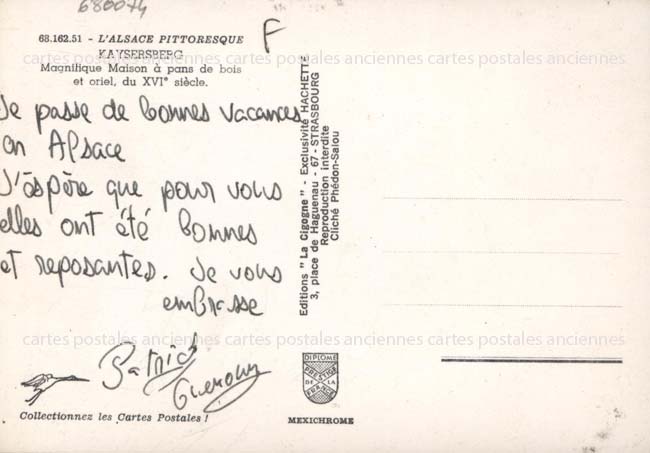 680074
68.162.51 - L'ALSACE PITTORESQUE
KAYSERSBERG
Magnifique Maison à pans de bois
et oriel, du XVIe siècle.
F
Je passe de bonnes vacances
en Alsace
J'éspère que pour vous
elles ont été bonnes
et reposantes. Je vous
embrasse
Patrick
Collectionnez les Cartes Postales !
Editions "La Cigogne" - Exclusivité HACHETTE
3, place de Haguenau - 67 - STRASBOURG
Reproduction interdite
Cliché Phédon-Salou
DIPLOME
PRESTIGE
DE LA
FRANCE
MEXICHROME
cartes postales anciennes cartes postales anciennes cartes postales anciennes
cartes postales anciennes cartes postales anciennes cartes postales anciennes